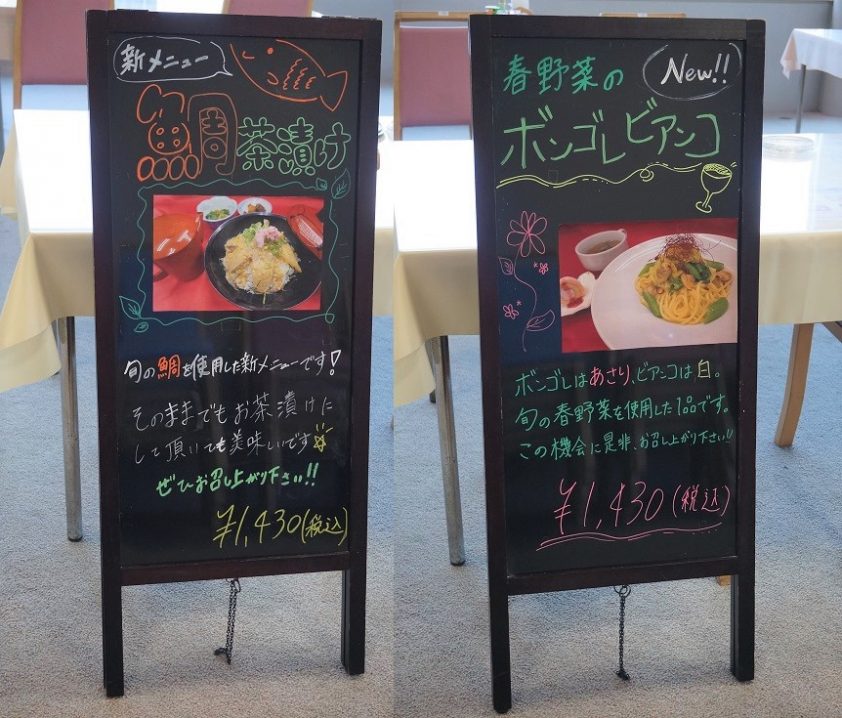 新メニュー
鯛茶漬け
旬の鯛を使用した新メニューです!
そのままでもお茶漬けに
して頂いても美味しいです
ぜひお召し上がり下さい!!
¥1,430(税込)
春野菜の
New!!
ボンゴレビアンコ
ボンゴレはあさり、ビアンコは白。
旬の春野菜を使用した1品です。
この機会に是非、お召し上がり下さい!!
¥1,430(税込)